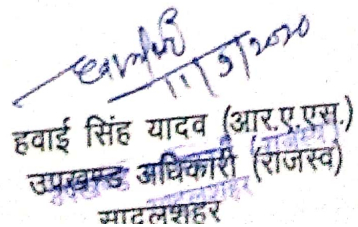 11/3/2020
हवाई सिंह यादव (आर.ए.एस.)
उपखण्ड अधिकारी (राजस्व)
सादुलशहर